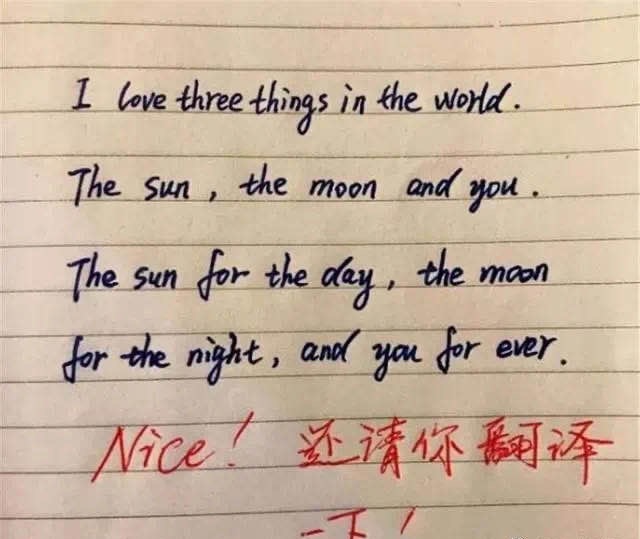 I love three things in the world.
The sun, the moon and you.
The sun for the day, the moon
for the night, and you for ever.
Nice! 还请你翻译
一下!